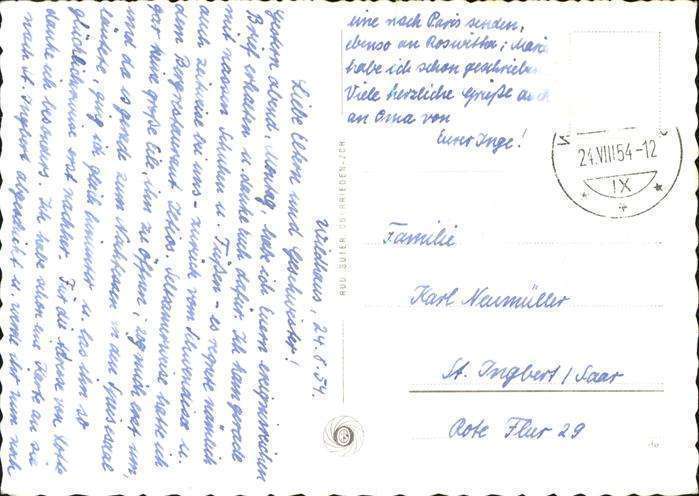 Wildhaus, 24.8.54.
Liebe Eltern und Geschwister!
Gestern abend, Montag, habe ich Euern
Brief erhalten u. danke Euch dafür. Ich kam gerade
mit nassen Schuhen u. Füßen - es regnete nämlich
auch zeitweise bei uns - zurück vom Schwendisee u.
dem Bergrestaurant Iltios. Seltsamerweise hatte ich
gar keine große Eile, ihn zu öffnen, zog mich erst um,
und da es gerade zum Nachtessen in den Speisesaal
läutete, ging ich gleich hinunter u. las ihn so
glücklicherweise erst nachher. Für die Adresse von
danke ich besonders. Ich habe schon eine Karte an sie
nach St. Ingbert abgeschickt u. werde der nun noch
eine nach Paris senden,
ebenso an Roswitha; Maria
habe ich schon geschrieben.
Viele herzliche Grüße auch
an Oma von
Eurer Inge!
RUD. SUTER, OBERRIEDEN-ZCH
24.VIII 54-12
IX
Familie
Karl Neumüller
St. Ingbert / Saar
Rote Flur 29